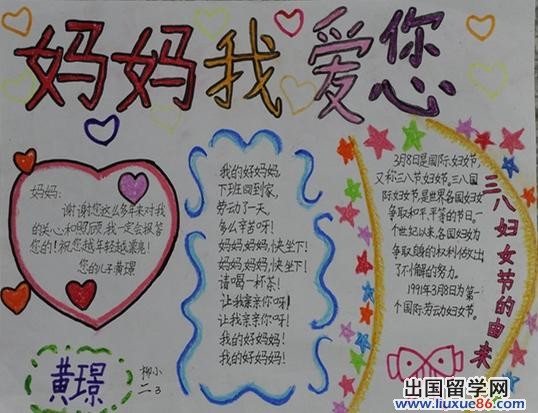 妈妈我爱您
妈妈:
谢谢您这么多年来对我
的关心和照顾,我一定会报答
您的!祝您越年轻越漂亮!
您的儿子黄璟
黄璟
柳小
二3
我的好妈妈,
下班回到家,
劳动了一天,
多么辛苦呀!
妈妈,妈妈,快坐下!
妈妈,妈妈,快坐下!
请喝一杯茶!
让我亲亲你呀!
让我亲亲你呀!
我的好妈妈!
我的好妈妈!
3月8是国际妇女节,
又称三八节妇女节。三八国
际妇女节,是世界各国妇女
争取和平,平等的节日。一
个世纪以来,各国妇女为
争取自身的权利做出
了不懈的努力。
1991年3月8日为第一
个国际劳动妇女节。
三八妇女节的由来
出国留学网
www.liuxue86.com